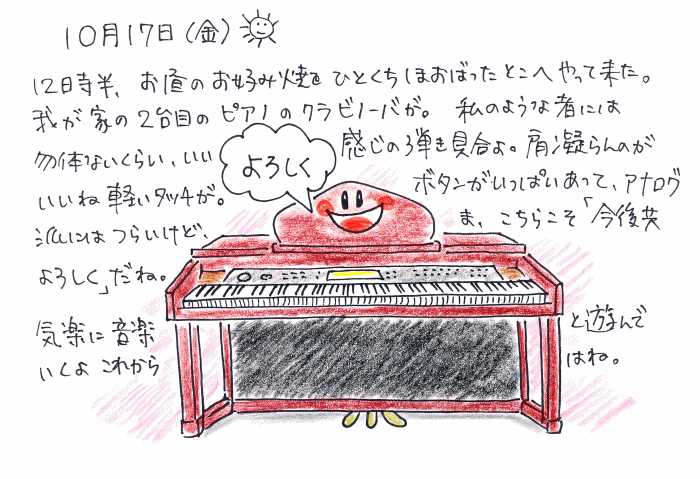 10月17日(金)
12時半、お昼のお好み焼をひとくちほおばったとこへやって来た。
我が家の2台目のピアノのクラビノーバが。私のような者には
勿体ないくらい、いい感じの弾き具合よ。肩凝らんのが
よろしく
いいね軽いタッチが。ボタンがいっぱいあって、アナログ
派にはつらいけど、ま、こちらこそ「今後共
よろしく」だね。
気楽に音楽と遊んで
いくよこれからはね。